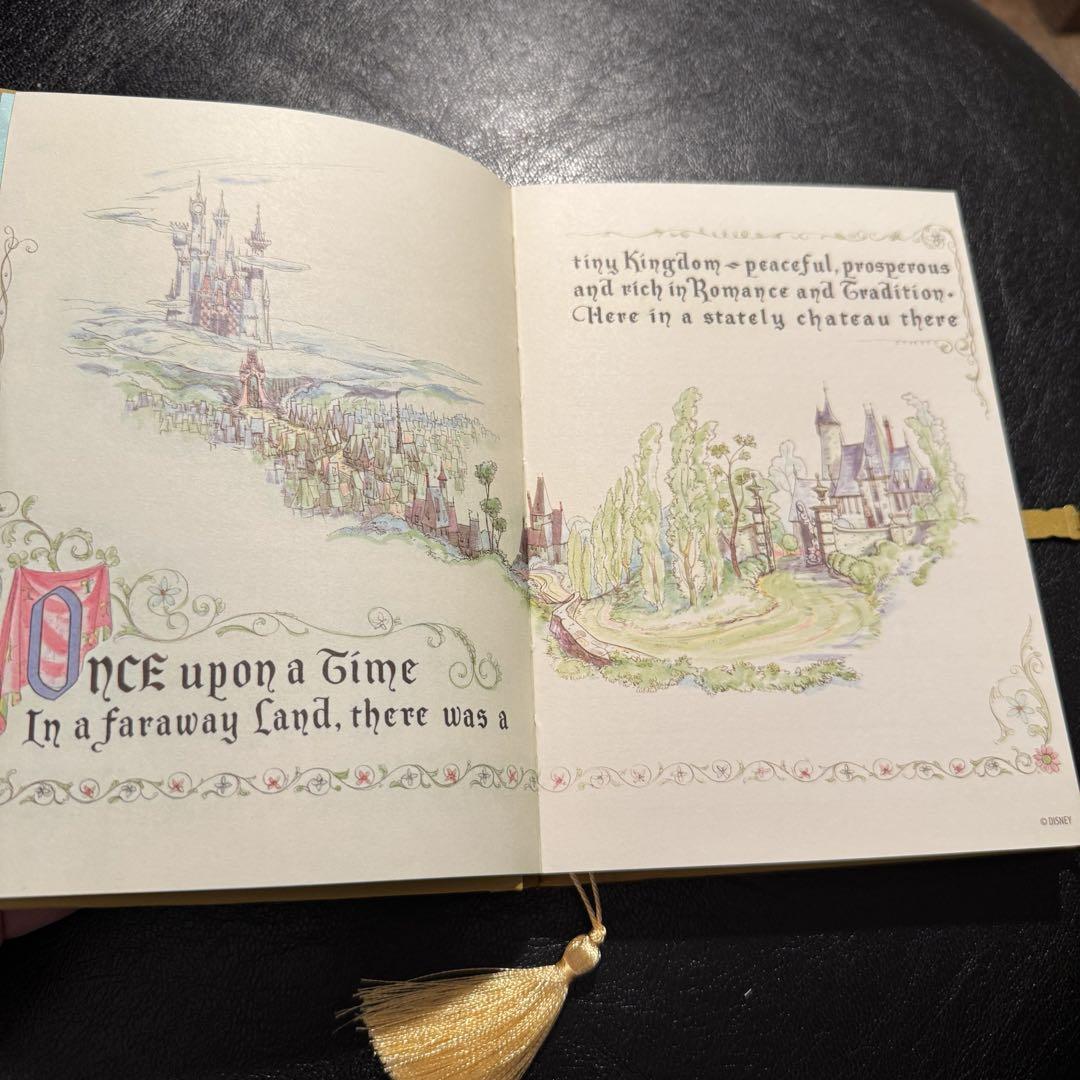 ONCE upon a Time
In a faraway Land, there was a
tiny Kingdom - peaceful, prosperous
and rich in Romance and Tradition.
Here in a stately chateau there
© DISNEY